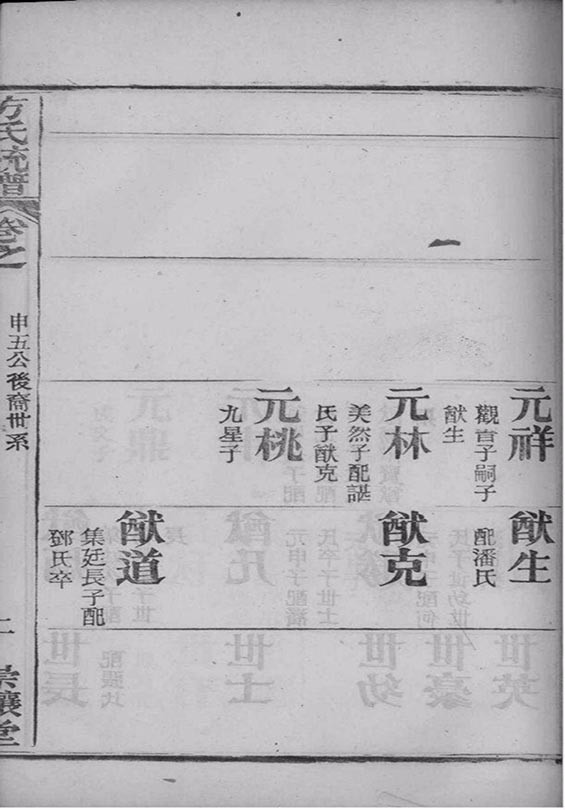 元祥
觀音子嗣子
猷生
元林
美然子配諶
氏子猷克
元桃
九星子
猷生
配潘氏
猷克
猷道
集廷長子配
鄧氏卒
方氏統譜
卷之
申五公後裔世系